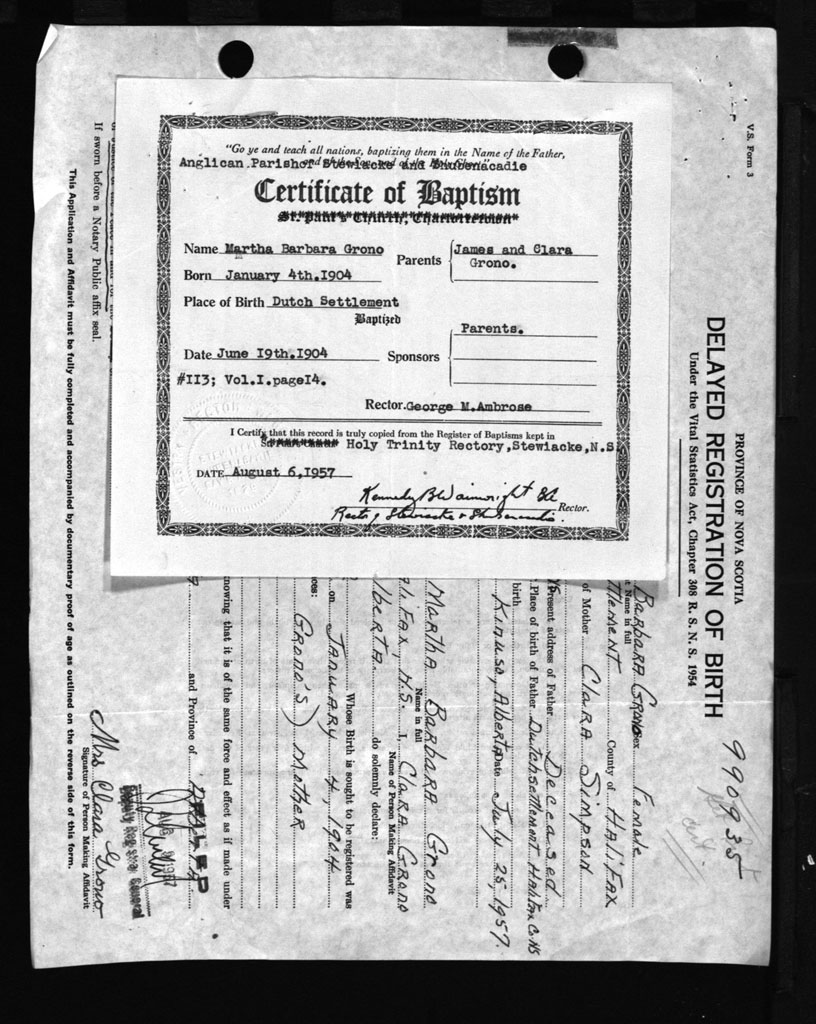 "Go ye and teach all nations, baptizing them in the Name of the Father,
Anglican Parish of Stewiacke and Shubenacadie
Certificate of Baptism
St. Paul's Church, Charlottetown
Name Martha Barbara Grono
Born January 4th.I904
Parents James and Clara
Grono.
Place of Birth Dutch Settlement
Baptized
Date June I9th.I904
Sponsors Parents.
#II3; Vol.I.pageI4.
Rector. George M.Ambrose
I Certify that this record is truly copied from the Register of Baptisms kept in
Holy Trinity Rectory,Stewiacke,N.S.
DATE August 6,I957
Kennedy B Wainwright
Rector.
Rector of Stewiacke & Shubenacadie.
V.S. Form 3
PROVINCE OF NOVA SCOTIA
DELAYED REGISTRATION OF BIRTH
Under the Vital Statistics Act, Chapter 308 R. S. N. S. 1954
990935
Barbara Grono Sex Female
Name in full
ttlement County of Halifax
of Mother Clara Simpson
Present address of Father Deceased
Place of birth of Father Dutch settlement Halifax Co NS
birth Kinuso, Alberta Date July 25, 1957.
Martha Barbara Grono
Name in full
lifax, N.S. I, Clara Grono
Name of Person Making Affidavit
lberta. do solemnly declare:
Whose Birth is sought to be registered was
on January 4, 1904
Grono's) Mother
nowing that it is of the same force and effect as if made under
and Province of
Deputy Registrar General
Mrs Clara Grono
Signature of Person Making Affidavit
If sworn before a Notary Public affix seal.
This Application and Affidavit must be fully completed and accompanied by documentary proof of age as outlined on the reverse side of this form.